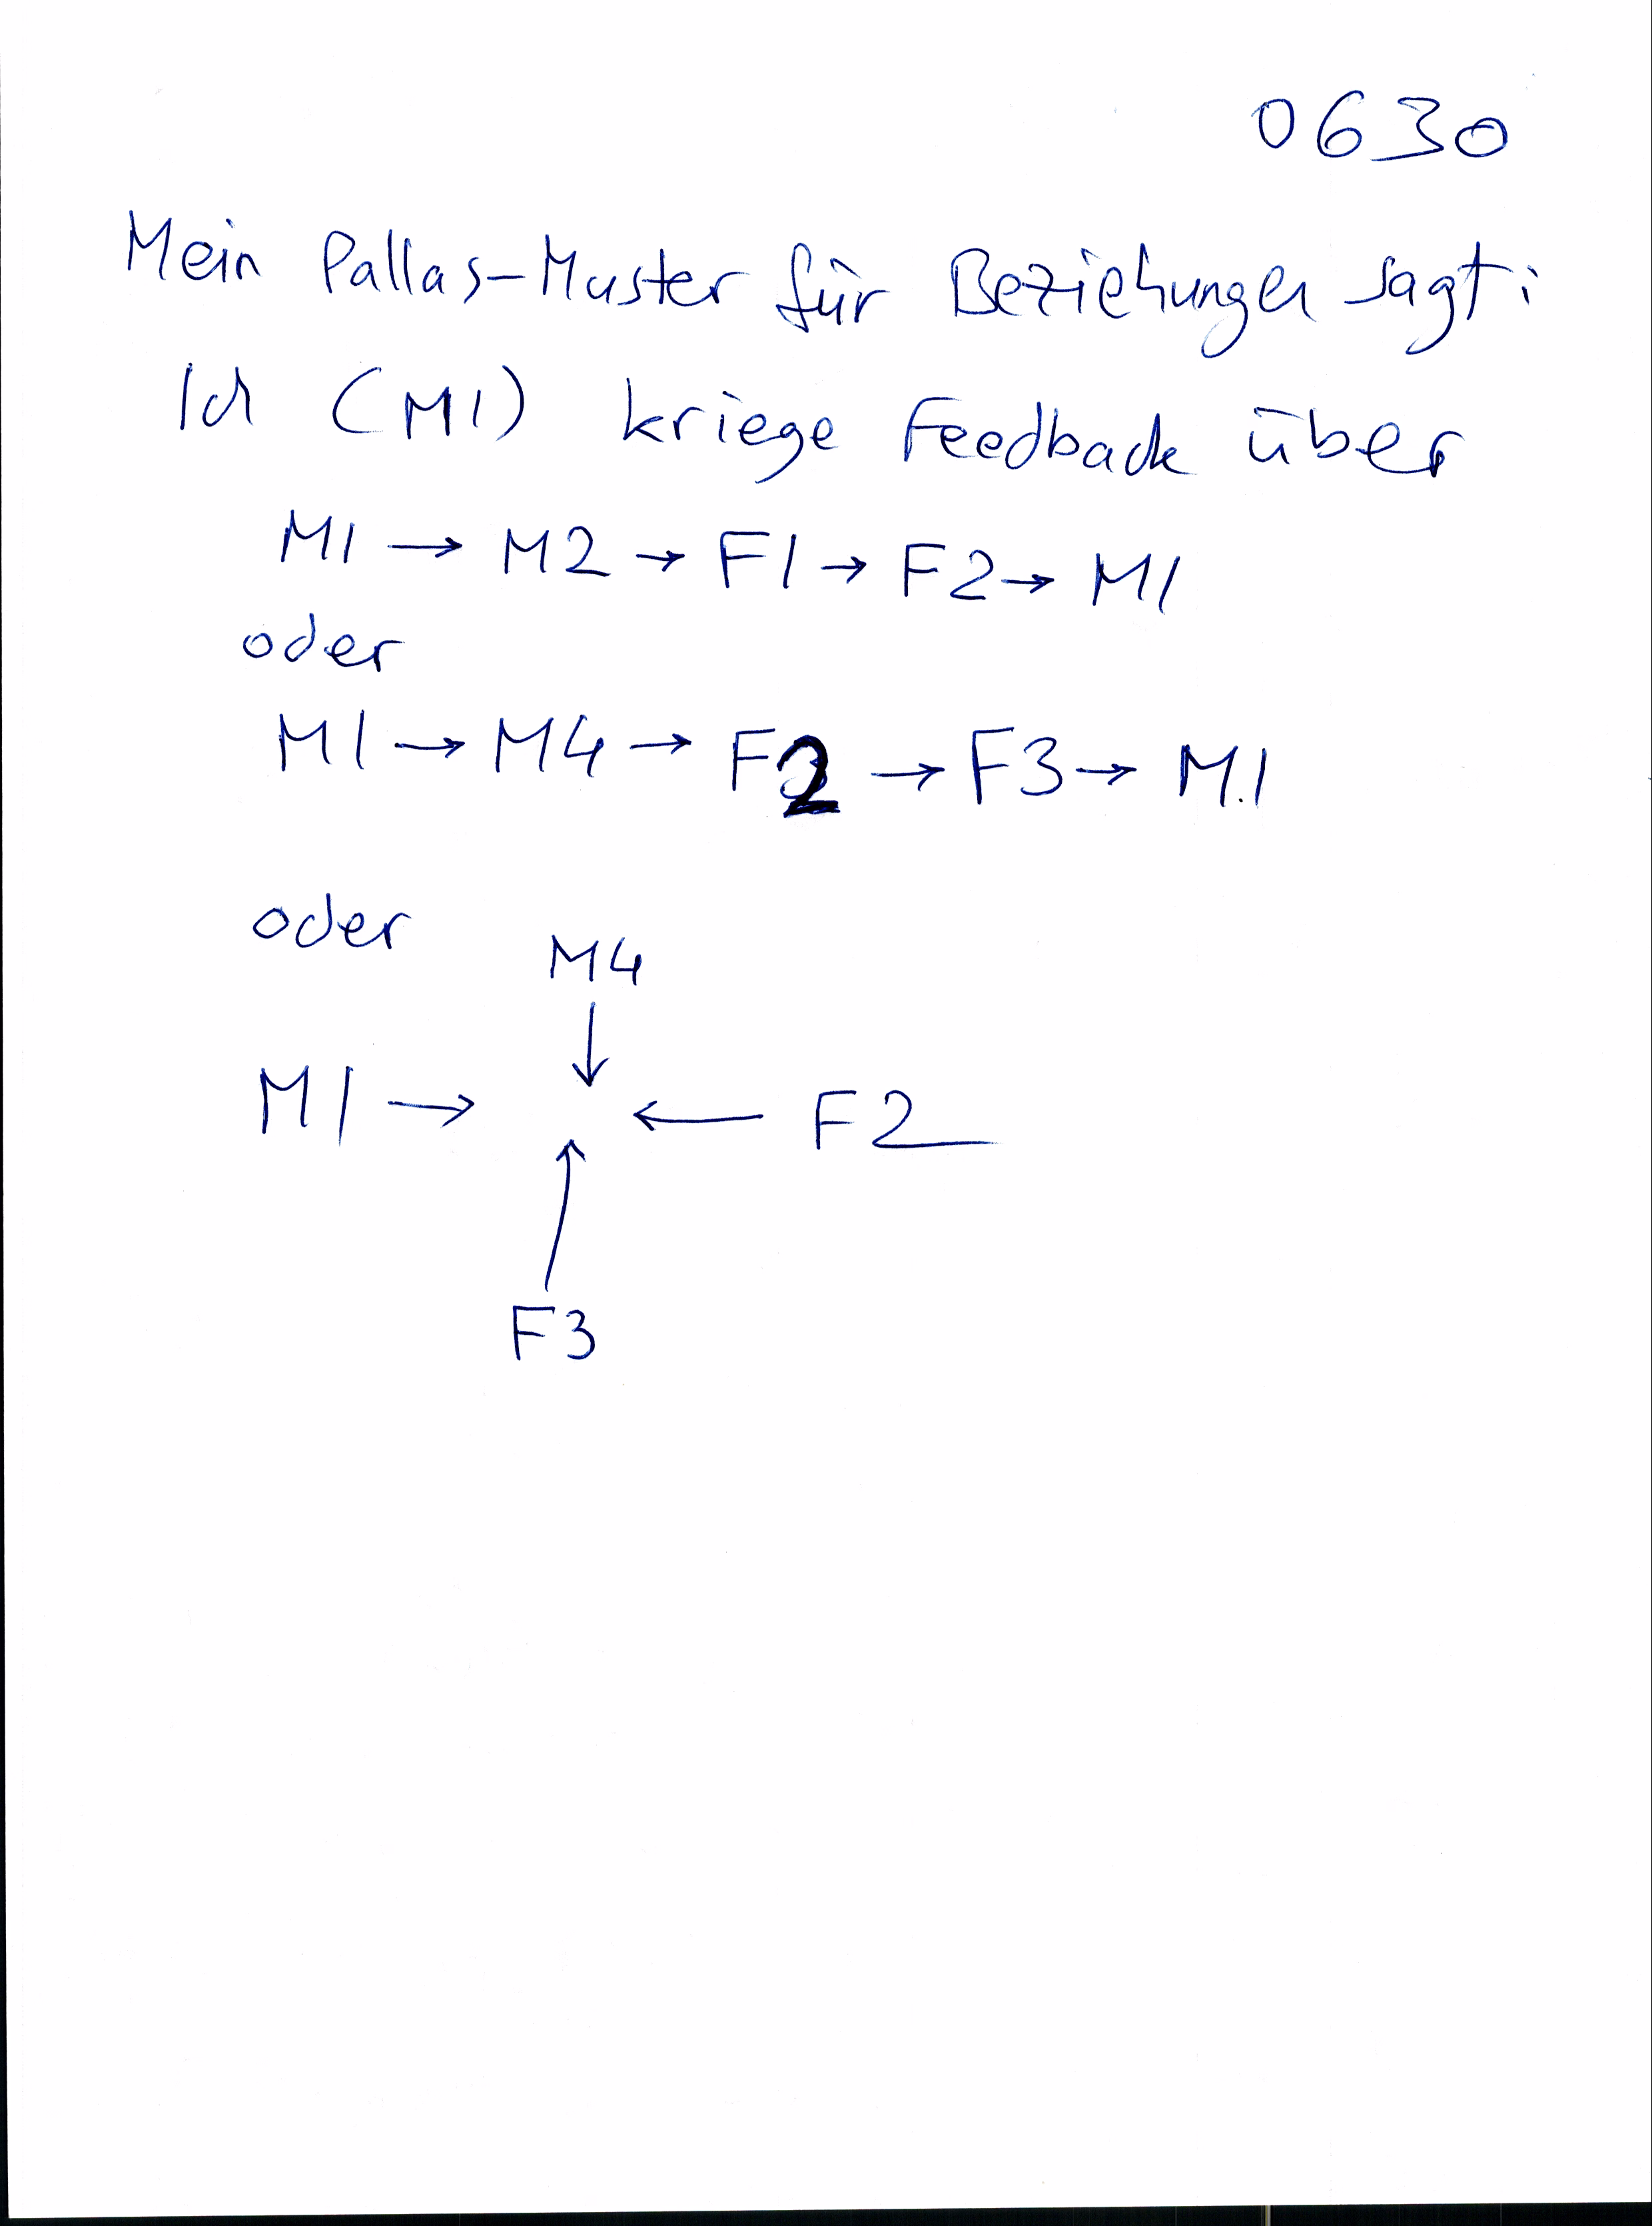 0630
Mein Pallas-Muster für Beziehungen sagt:
Ich (M1) kriege Feedback über
M1 → M2 → F1 → F2 → M1
oder
M1 → M4 → F2 → F3 → M1
oder
M4
↓
M1 → ← F2
↑
F3